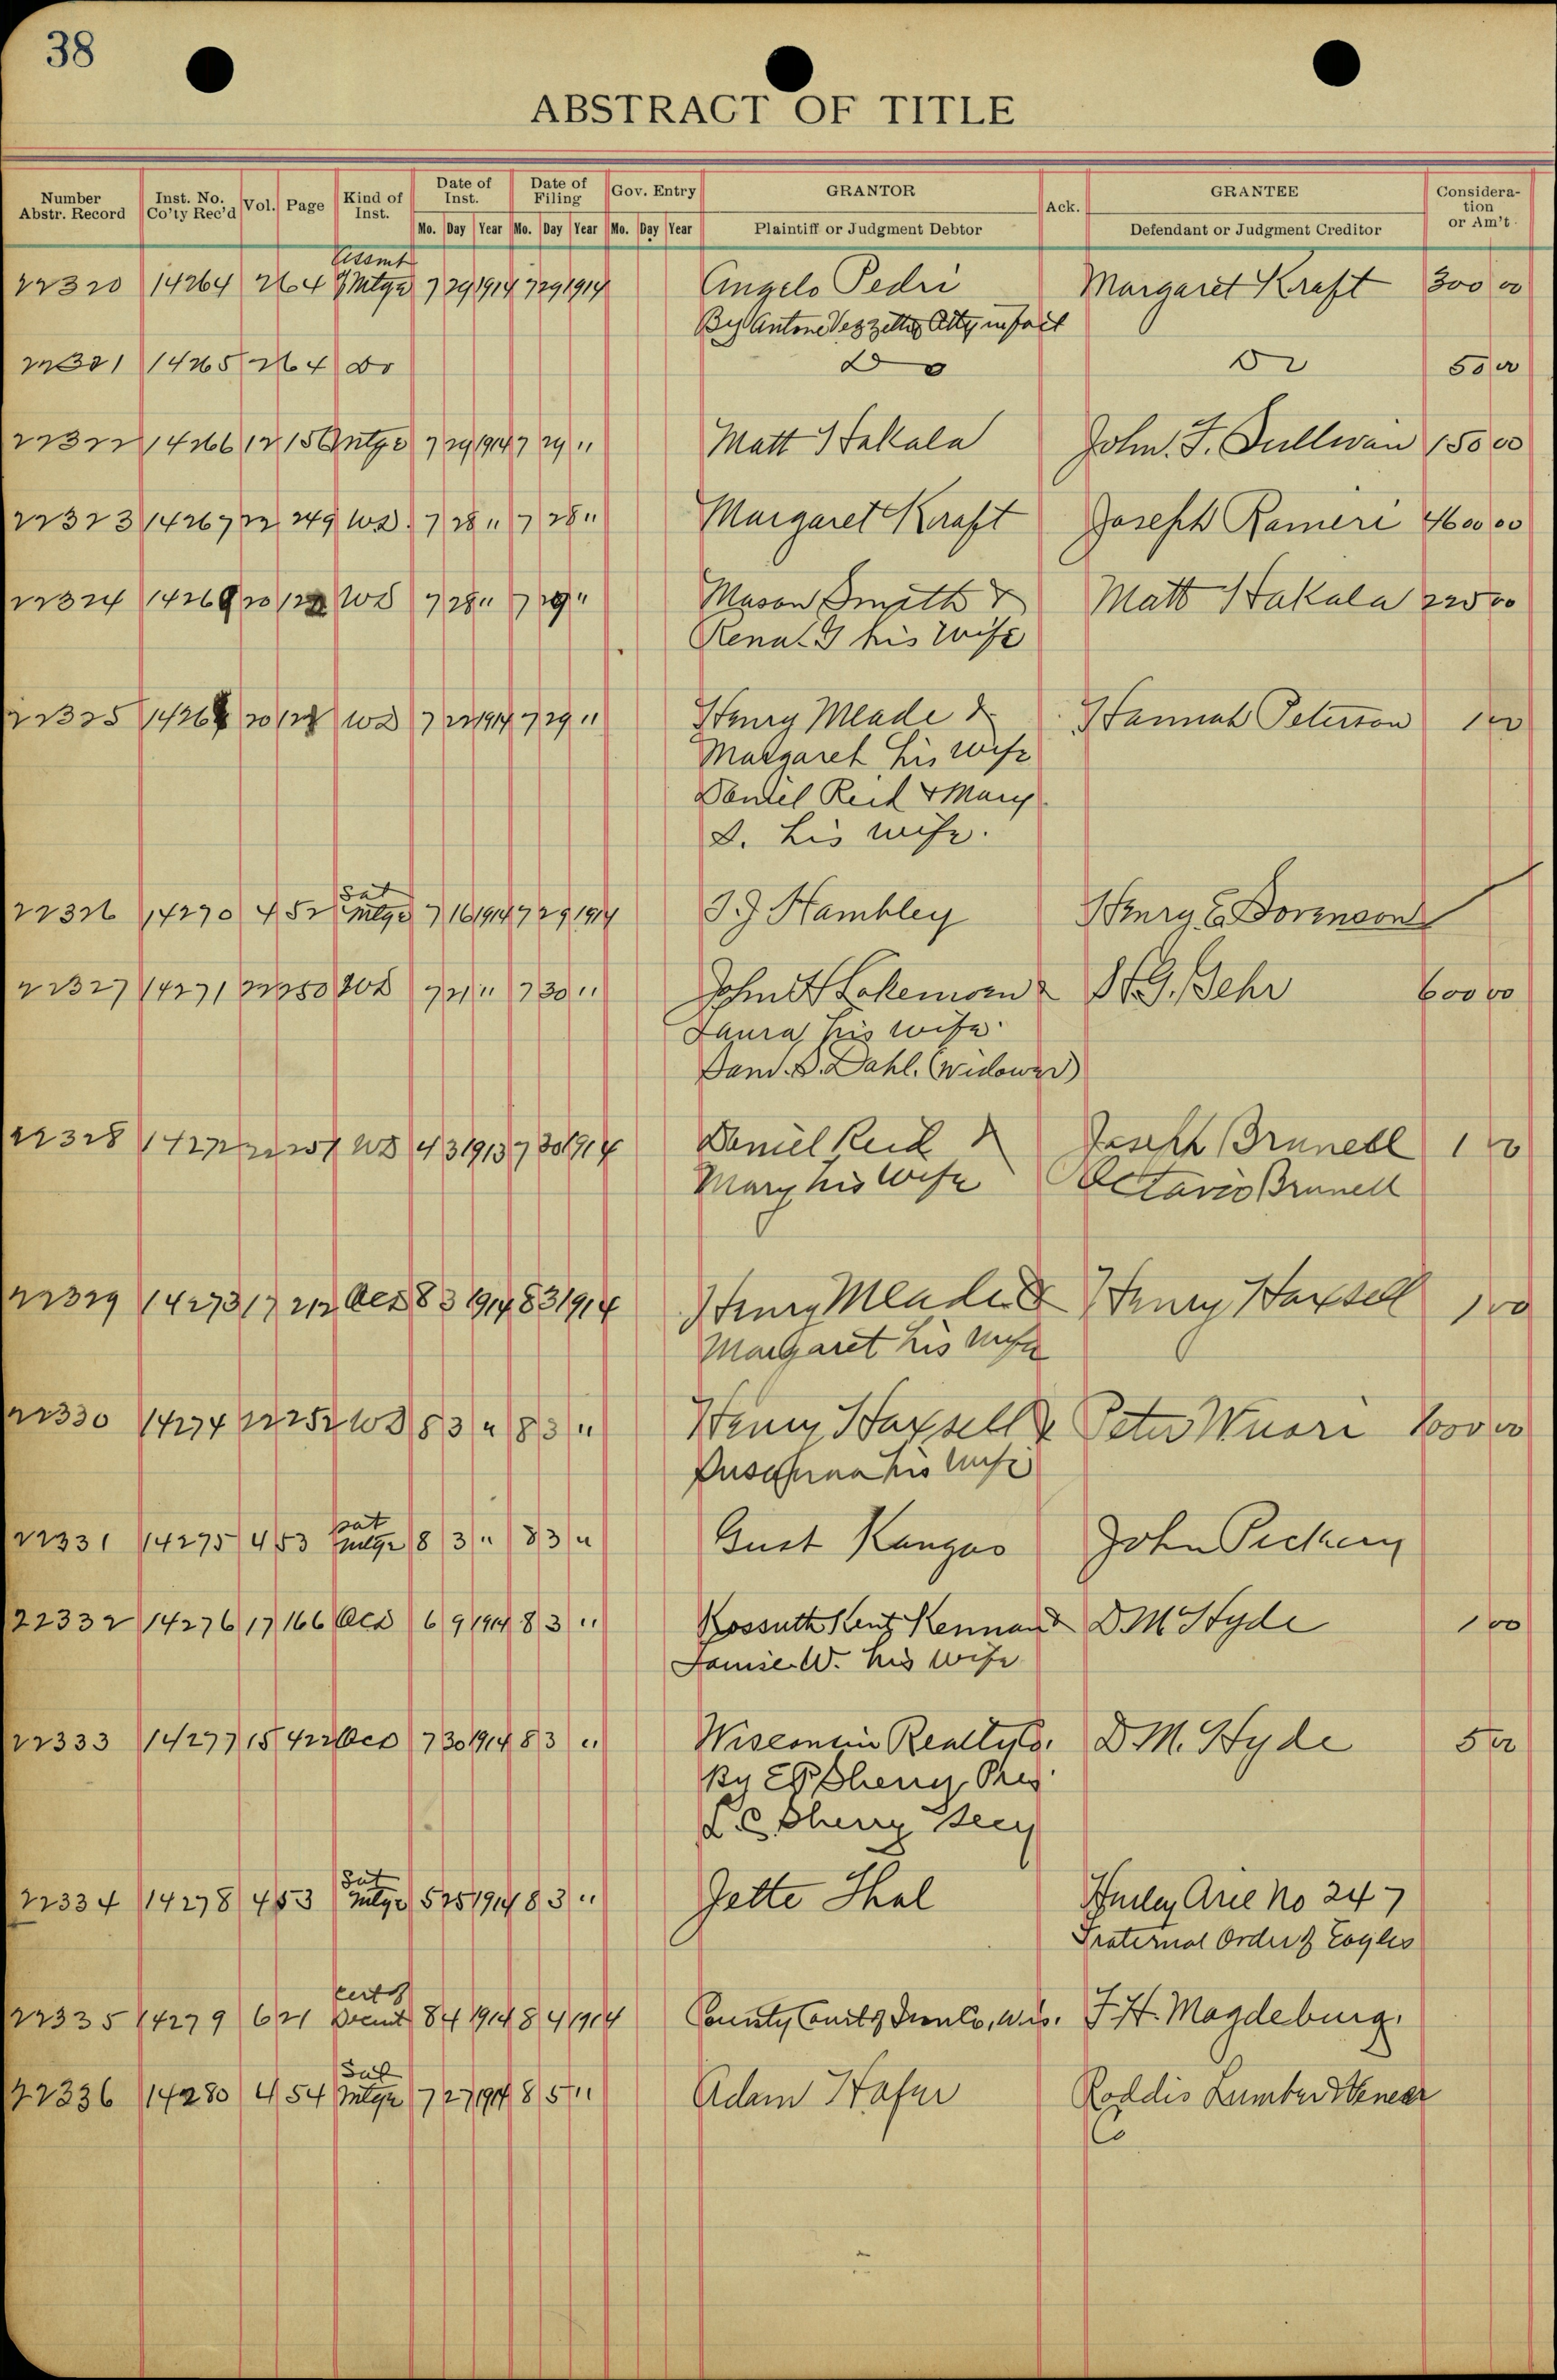 38
ABSTRACT OF TITLE
Number Abstr. Record Inst. No. Co'ty Rec'd Vol. Page Kind of Inst. Date of Inst. Date of Filing Gov. Entry GRANTOR Ack. GRANTEE Considera-tion or Am't
Mo. Day Year Mo. Day Year Mo. Day Year Plaintiff or Judgment Debtor Defendant or Judgment Creditor
Assmt
22320 14264 264 Mtge 7 29 1914 7 29 1914 Angelo Pedri Margaret Kraft 300 00
By Antone Vezzetti Atty in fact
22321 14265 264 Do Do Do 50 00
22322 14266 12 15 Mtge 7 29 1914 7 29 " Matt Hakala John. F. Sullivan 150 00
22323 14267 22 249 WD. 7 28 " 7 28 " Margaret Kraft Joseph Rameri 4600 00
22324 14269 20 WD 7 28 " 7 29 " Mason Smith & Matt Hakala 225 00
Rena G his wife
22325 20 WD 7 22 1914 7 29 " Henry Meade & Hannah Peterson 1 00
Margaret his wife
Daniel Reid & Mary
D. his wife.
Sat
22326 14270 4 52 mtge 7 16 1914 7 29 1914 Hambley Henry E. Sorenson
22327 14271 22 250 WD 7 21 " 7 30 " John Gehr 600 00
Laura his wife
Dahl. (widower)
22328 14272 22 251 WD 4 3 1913 7 30 1914 Daniel Reid & Joseph Brunell 1 00
Mary his wife Octavio Brunell
22329 14273 17 212 QCD 8 3 1914 8 3 1914 Henry Meade & Henry Haxsell 1 00
Margaret his wife
22330 14274 22 252 WD 8 3 " 8 3 " Henry Haxsell & Peter Wuori 00
his wife
Sat
22331 14275 4 53 mtge 8 3 " 8 3 " Gust Kangas John
22332 14276 17 166 QCD 6 9 1914 8 3 " Kossuth Kent Kennan & D M Hyde 1 00
Louise W. his wife
22333 14277 15 422 QCD 7 30 1914 8 3 " Wisconsin Realty Co. D. M. Hyde 5 00
By Sherry, Pres.
Sherry Secy
Sat
22334 14278 4 53 Mtge 5 25 1914 8 3 " Jette Thal Hurley Arie No 247
Fraternal Order of Eagles
Cert of
22335 14279 6 21 8 4 1914 8 4 1914 County Court Co, Wis. F. H. Magdeburg.
Sat
22336 14280 4 54 Mtge 7 27 1914 8 5 " Adam Hafer Roddis Lumber & Veneer
Co